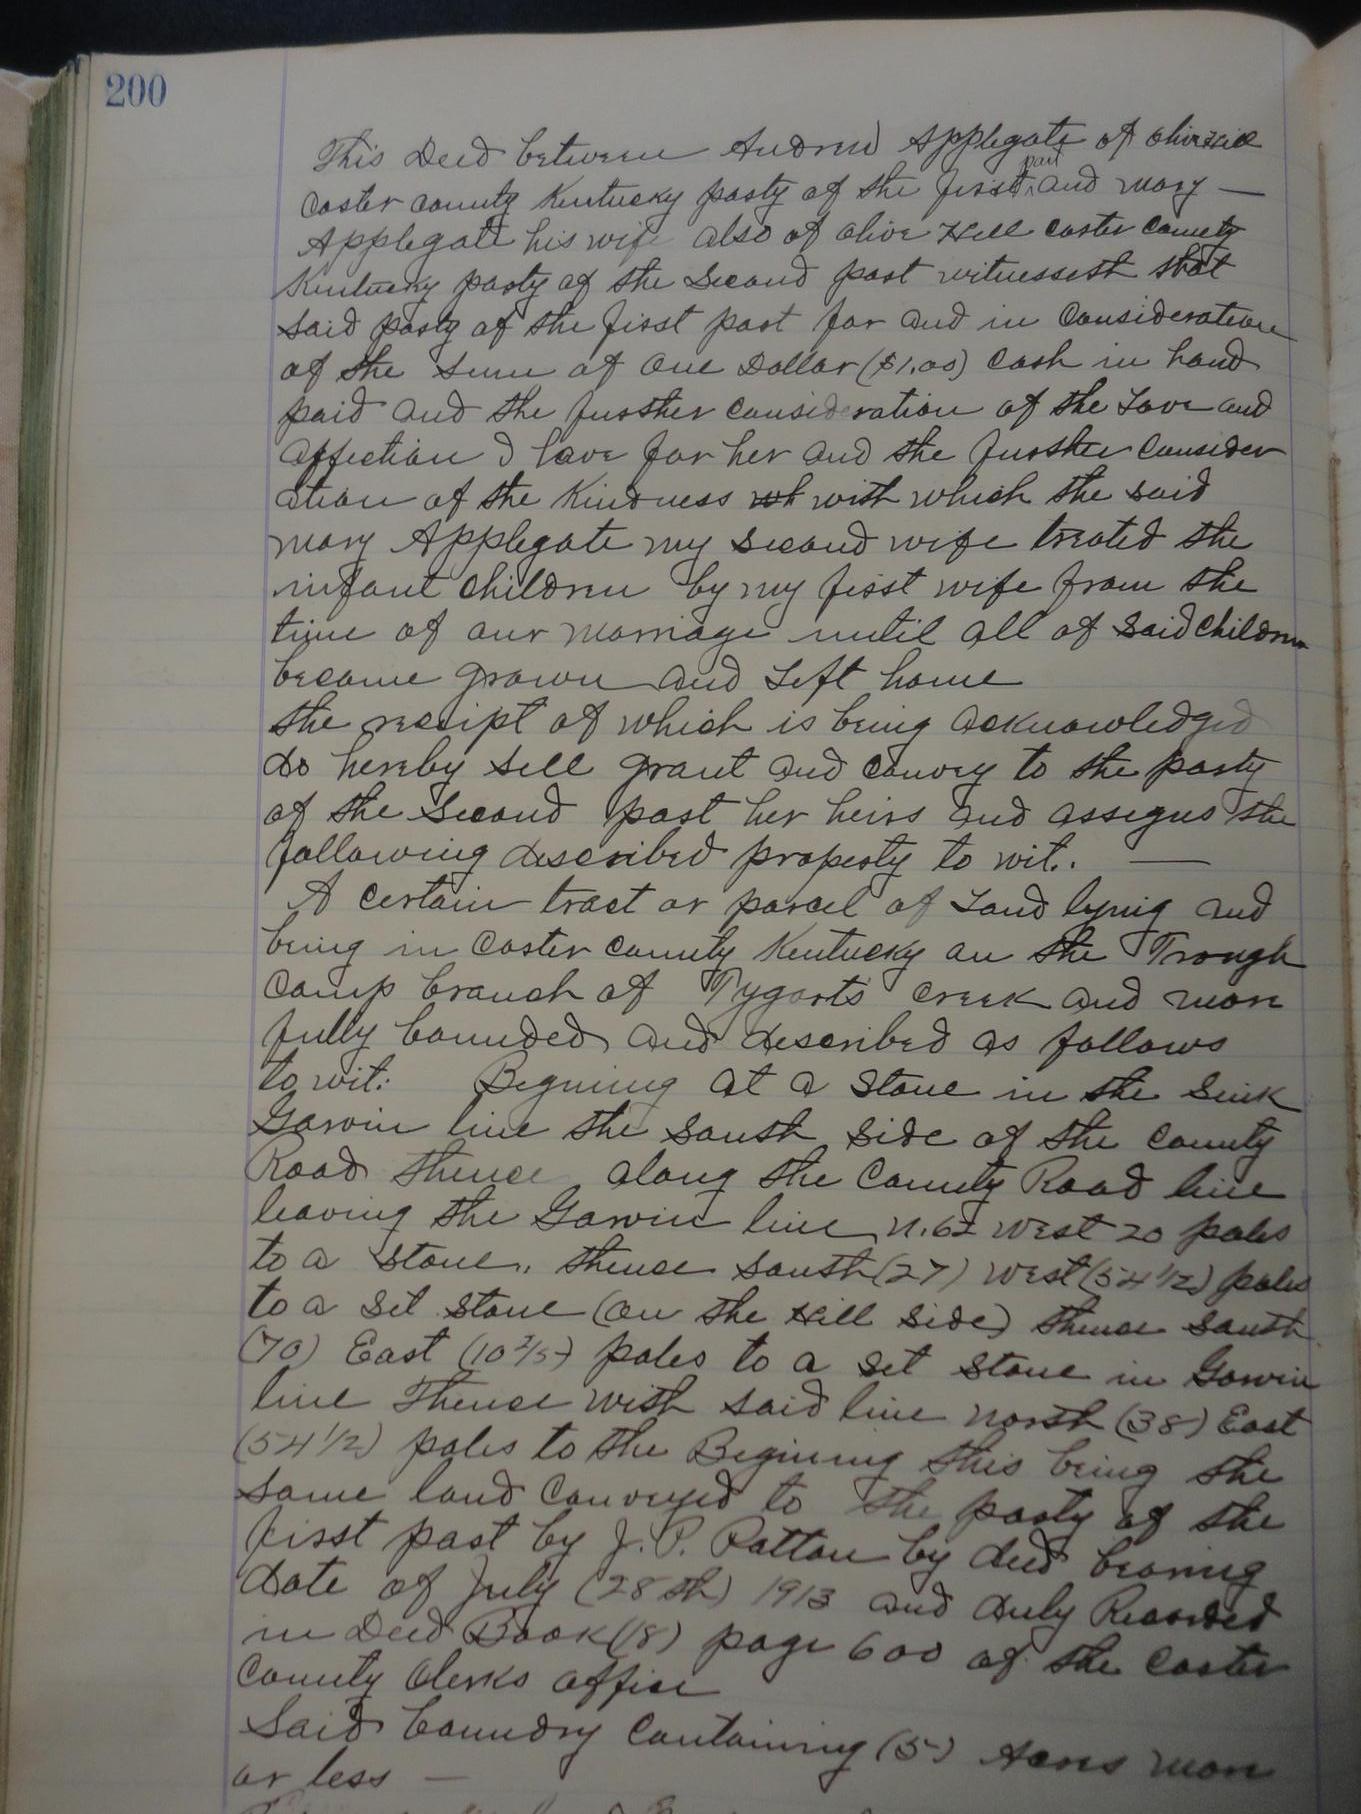 200
This Deed between Andrew Applegate of Olive Hill
Carter County Kentucky party of the first part and Mary —
Applegate his wife also of Olive Hill Carter County
Kentucky party of the Second part witnesseth that
said party of the first part for and in Consideration
of the Sum of One Dollar ($1.00) Cash in hand
paid and the further consideration of the Love and
affection I have for her and the further Consider
ation of the Kindness with which the said
Mary Applegate my Second wife treated the
infant Children by my first wife from the
time of our Marriage until all of Said Children
became grown and Left home
the receipt of which is being acknowledged
do hereby Sell grant and Convey to the party
of the Second part her heirs and assigns the
following described property to wit: —
A Certain tract or parcel of Land lying and
being in Carter County Kentucky on the Trough
Camp branch of Tygarts Creek and more
fully bounded and described as follows
to wit: Begining at a Stone in the Sink
Garvin line the South Side of the County
Road thence along the County Road line
leaving the Garvin line N. 62 West 20 poles
to a Stone, thence South (27) West (54 1/2) poles
to a Set Stone (on the Hill Side) thence South
(70) East (10 2/5) poles to a Set Stone in Garvin
line Thence with Said line North (38) East
(54 1/2) poles to the Begining this being the
Same land Conveyed to the party of the
first part by J. P. Patton by deed bearing
date of July (28th) 1913 and duly Recorded
in Deed Book (18) page 600 of the Carter
County Clerks office
Said boundry Containing (5) Acres more
or less —